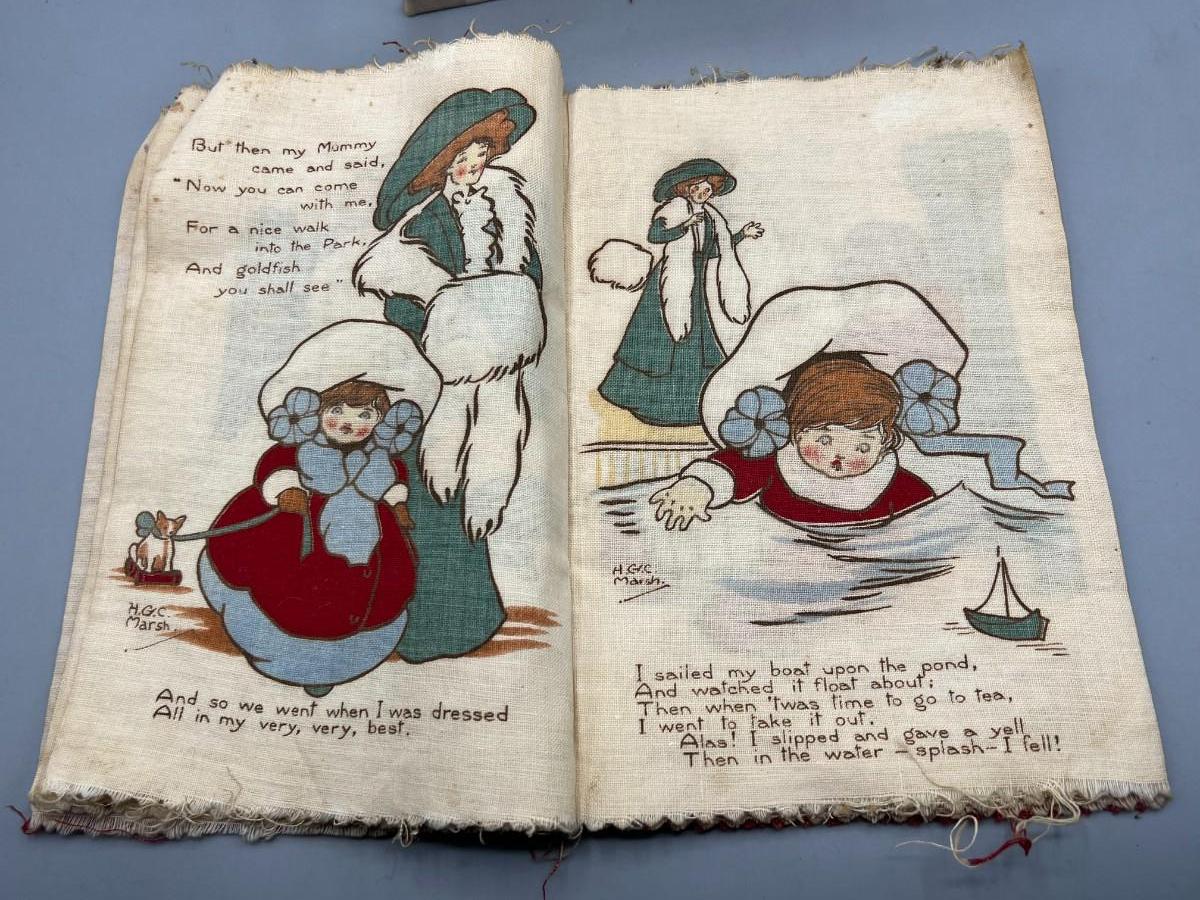 But then my Mummy
came and said,
"Now you can come
with me,
For a nice walk
into the Park,
And goldfish
you shall see"
H.G.C.
Marsh.
And so we went when I was dressed
All in my very, very, best.
H.G.C.
Marsh.
I sailed my boat upon the pond,
And watched it float about;
Then when 'twas time to go to tea,
I went to take it out.
Alas! I slipped and gave a yell
Then in the water - splash - I fell!